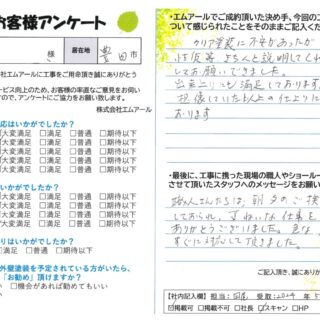 お客様アンケート
様
居在地
豊田市
社エムアールに工事をご用命頂き誠にありがとう
ービス向上のため、お客様の率直なご意見をお伺い
すので、アンケートにご協力をお願い致します。
株式会社エムアール
応はいかがでしたか？
大変満足 □満足 □普通 □期待以下
大変満足 □満足 □普通 □期待以下
大変満足 □満足 □普通 □期待以下
大変満足 □満足 □普通 □期待以下
大変満足 □満足 □普通 □期待以下
はいかがでしたか？
大変満足 □満足 □普通 □期待以下
大変満足 □満足 □普通 □期待以下
大変満足 □満足 □普通 □期待以下
りはいかがでしたか？
大変満足 □満足 □普通 □期待以下
外壁塗装を予定されている方がいたら、
「お勧め」頂けますか？
い □機会があれば勧めてもいい
い
・エムアールでご成約頂いた決め手、今回の工
ついて感じられたことをそのままご記入くだ
クリア塗装に不安があったが
きちんと説明してくれ
してお願いできました。
出来上りにも満足しております。
想像していた以上の仕上りに
おります
・最後に、工事に携った現場の職人やショールー
させて頂いたスタッフへのメッセージをお願い
職人さんたちは、朝夕のご挨
しておられ、きれいな仕事を
ありがとうございました。
すぐに対応して頂きました。
ご記入頂き、誠にありがと
【社内記入欄】担当： 受取：2024年5
掲載可 □掲載不可 □社長 スキャン □HP